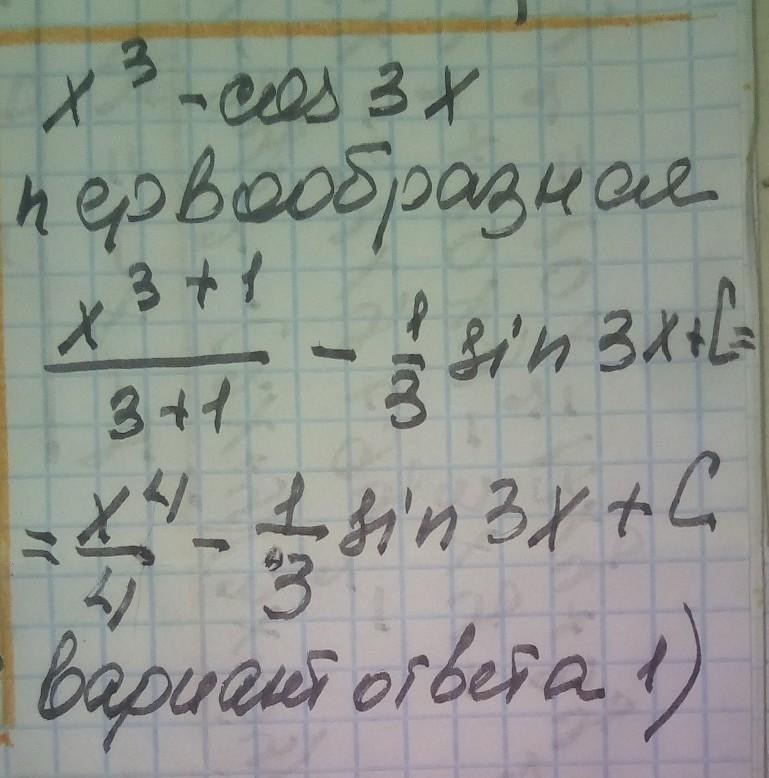 x³ - cos 3x
первообразная
x^(3+1)/(3+1) - 1/3 sin 3x + C =
= x⁴/4 - 1/3 sin 3x + C
вариант ответа 1)